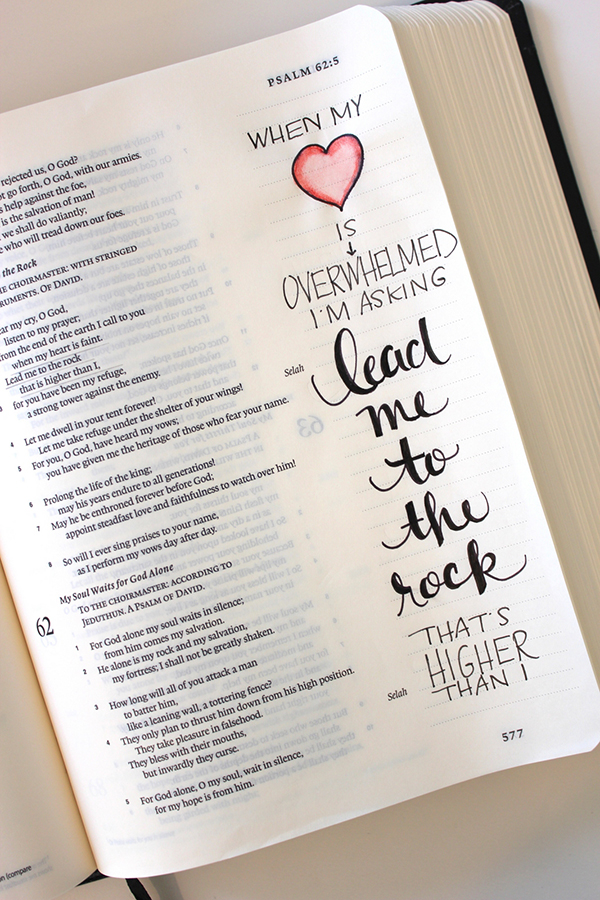 PSALM 62:5
rejected us, O God?
go forth, O God, with our armies.
help against the foe,
is the salvation of man!
we shall do valiantly;
who will tread down our foes.
the Rock
CHOIRMASTER: WITH STRINGED
OF DAVID.
my cry, O God,
listen to my prayer;
from the end of the earth I call to you
when my heart is faint.
Lead me to the rock
that is higher than I,
3 for you have been my refuge,
a strong tower against the enemy.
4 Let me dwell in your tent forever!
Let me take refuge under the shelter of your wings! Selah
5 For you, O God, have heard my vows;
you have given me the heritage of those who fear your name.
6 Prolong the life of the king;
may his years endure to all generations!
7 May he be enthroned forever before God;
appoint steadfast love and faithfulness to watch over him!
8 So will I ever sing praises to your name,
as I perform my vows day after day.
My Soul Waits for God Alone
62 TO THE CHOIRMASTER: ACCORDING TO
JEDUTHUN. A PSALM OF DAVID.
1 For God alone my soul waits in silence;
from him comes my salvation.
2 He alone is my rock and my salvation,
my fortress; I shall not be greatly shaken.
3 How long will all of you attack a man
to batter him,
like a leaning wall, a tottering fence?
4 They only plan to thrust him down from his high position.
They take pleasure in falsehood.
They bless with their mouths,
but inwardly they curse. Selah
5 For God alone, O my soul, wait in silence,
for my hope is from him.
WHEN MY
IS
OVERWHELMED
I'M ASKING
lead
me
to
the
rock
THAT'S
HIGHER
THAN I
577
(compare